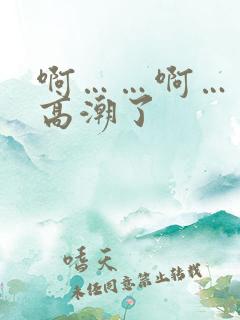 啊……啊…
高潮了
嗜天
未经同意禁止转载